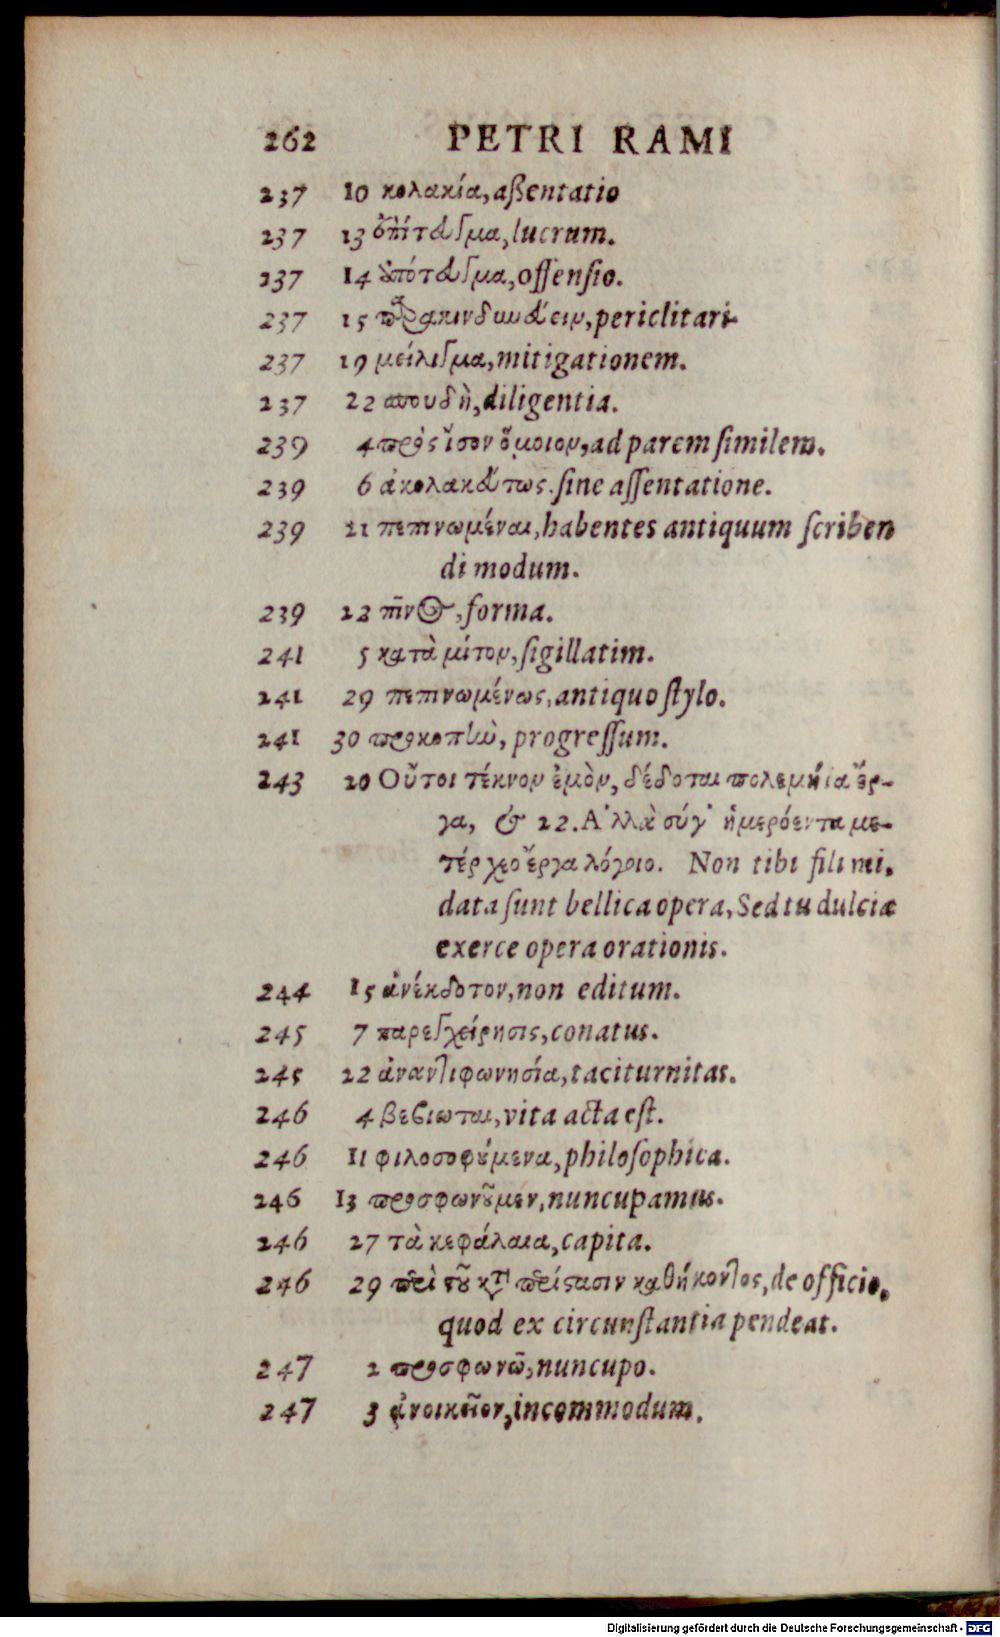 262 PETRI RAMI
237 10 κολακία, aßentatio
237 13 ἐπίτευγμα, lucrum.
237 14 ἀπότευγμα, offensio.
237 15 παρακινδυνεύειν, periclitari
237 19 μείλιγμα, mitigationem.
237 22 σπουδὴ, diligentia.
239 4 πρὸς ἴσον ὅμοιον, ad parem similem.
239 6 ἀκολακεύτως. sine assentatione.
239 21 πεπινωμέναι, habentes antiquum scriben
di modum.
239 22 πῖνος, forma.
241 5 κατὰ μίτον, sigillatim.
241 29 πεπινωμένως, antiquo stylo.
241 30 προκοπὴν, progressum.
243 20 Οὔτοι τέκνον ἐμὸν, δέδοται πολεμήϊα ἔρ-
γα, & 22. Ἀλλὰ σύγ' ἡμερόεντα με-
τέρχεο ἔργα λόγοιο. Non tibi fili mi,
data sunt bellica opera, Sed tu dulcia
exerce opera orationis.
244 15 ἀνέκδοτον, non editum.
245 7 παρεγχείρησις, conatus.
245 22 ἀναντιφωνησία, taciturnitas.
246 4 βεβίωται, vita acta est.
246 11 φιλοσοφούμενα, philosophica.
246 13 προσφωνοῦμεν, nuncupamus.
246 27 τὰ κεφάλαια, capita.
246 29 περὶ τοῦ κατὰ περίστασιν καθήκοντος, de officio,
quod ex circunstantia pendeat.
247 2 προσφωνῶ, nuncupo.
247 3 ἀνοικεῖον, incommodum.
Digitalisierung gefördert durch die Deutsche Forschungsgemeinschaft - DFG